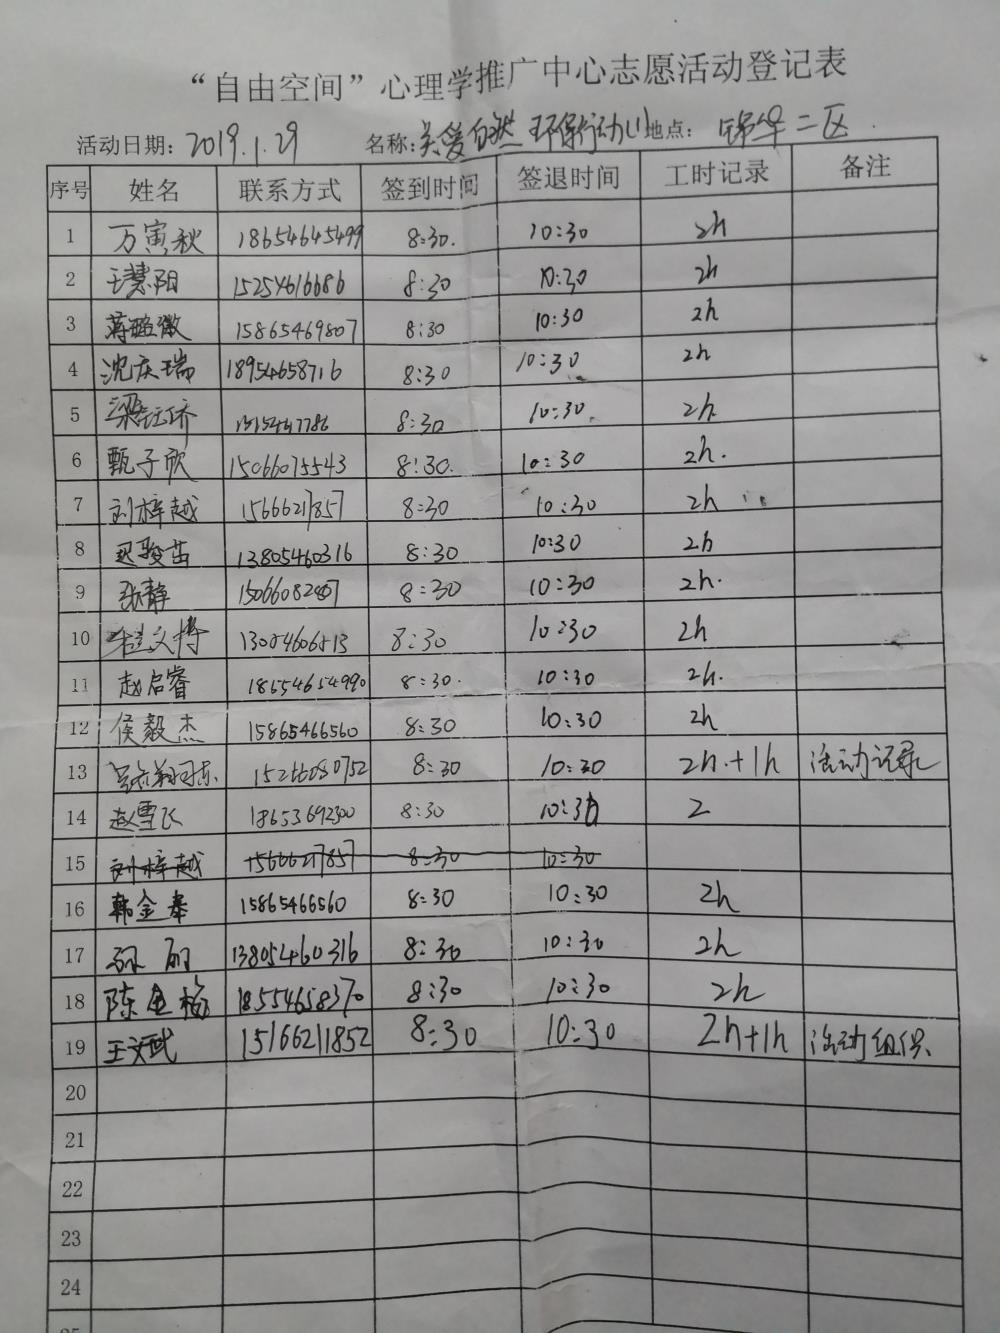 “自由空间”心理学推广中心志愿活动登记表
活动日期：2019.1.29 名称：关爱自然 环保行动(1) 地点： 锦华二区
序号 姓名 联系方式 签到时间 签退时间 工时记录 备注
1 万寅秋 18654645499 8:30. 10:30 2h
2 王慧阳 15254616686 8:30 10:30 2h
3 蒋璐徽 15865469807 8:30 10:30 2h
4 沈庆瑞 18954658716 8:30 10:30 2h
5 梁钰侨 8:30 10:30. 2h
6 甄子欣 15066075543 8:30. 10:30 2h.
7 刘梓越 15666217857 8:30 10:30 2h
8 13805460316 8:30 10:30 2h
9 张静 8:30 10:30 2h.
10 13054606513 8:30 10:30 2h
11 赵启睿 18654654990 8:30. 10:30 2h.
12 侯毅杰 15865466560 8:30 10:30 2h
13 15266080752 8:30 10:30 2h.+1h 活动记录
14 赵雪飞 18653692300 8:30 10:30 2
15 刘梓越 15666217857 8:30 10:30
16 韩金奉 15865466560 8:30 10:30 2h
17 孙丽 13805460316 8:30 10:30 2h
18 陈金梅 18554658370 8:30 10:30 2h
19 王汝武 15166211852 8:30 10:30 2h+1h 活动组织
20
21
22
23
24
25